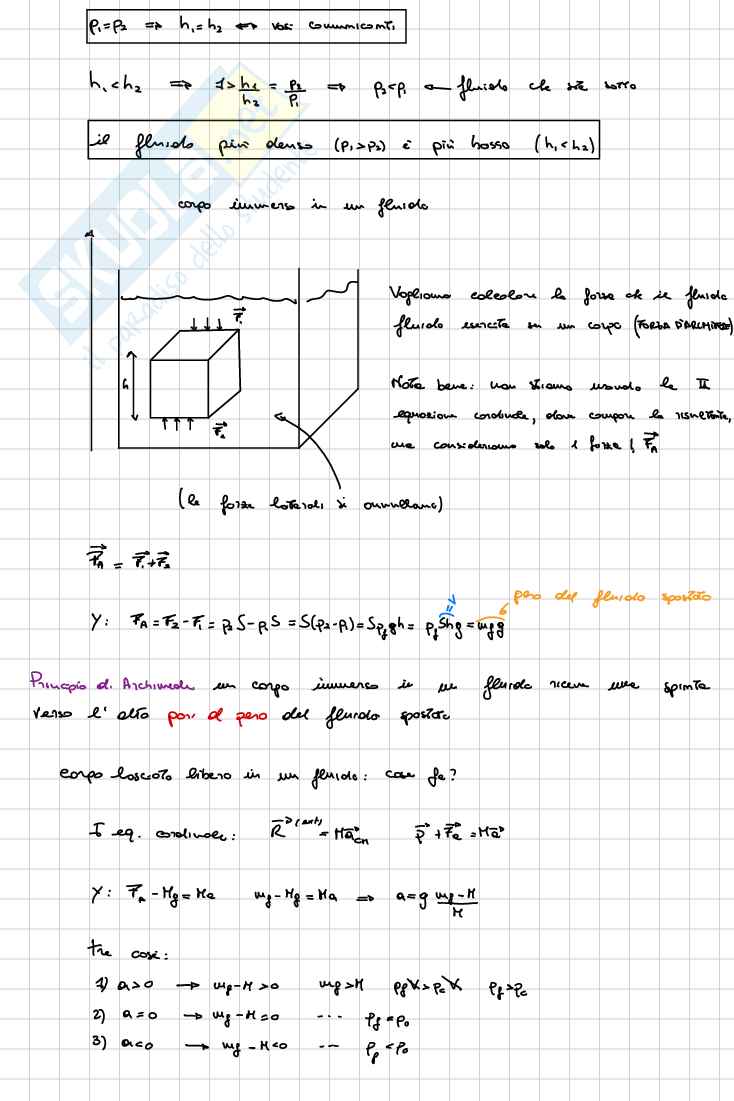 ρ₁=ρ₂ ⇒ h₁=h₂ ⟷ vasi comunicanti
h₁<h₂ ⇒ 1>h₁/h₂ = ρ₂/ρ₁ ⇒ ρ₂<ρ₁ ← fluido che sta sotto
il fluido più denso (ρ₁>ρ₂) è più basso (h₁<h₂)
corpo immerso in un fluido
Vogliamo calcolare la forza che il fluido
fluido esercita su un corpo (FORZA D'ARCHIMEDE)
F₁
h
F₂
Nota bene: non stiamo usando la II
equazione cardinale, dove compare la risultante,
ma consideriamo solo 1 forza, F_A
(le forze laterali si annullano)
F_A = F₁+F₂
peso del fluido spostato
V
Y: F_A = F₂-F₁ = p₂S-p₁S = S(p₂-p₁) = Sρ_f gh = ρ_f Shg = m_f g
Principio di Archimede un corpo immerso in un fluido riceve una spinta
verso l'alto pari al peso del fluido spostato
corpo lasciato libero in un fluido: cosa fa?
I eq. cardinale: R^(ext) = Ma_cm p+F_a=Ma
Y: F_A-Mg=Ma m_f g-Mg=Ma ⇒ a=g (m_f-M)/M
tre casi:
1) a>0 → m_f-M>0 m_f>M ρ_f V>ρ_c V ρ_f>ρ_c
2) a=0 → m_f-M=0 --- ρ_f=ρ_c
3) a<0 → m_f-M<0 --- ρ_f<ρ_c
SKUOLA.net
il paradiso dello studente